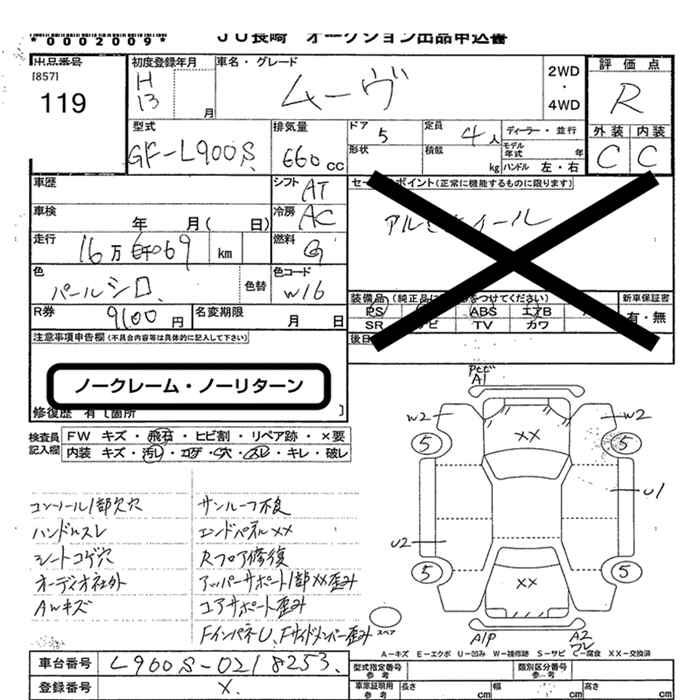 *0002009*
JU長崎 オークション出品申込書
出品番号
[857]
119
初度登録年月
H
13
月
車名・グレード
ムーヴ
2WD
・
4WD
評価点
R
外装 内装
C C
型式
GF-L900S
排気量
660 cc
ドア 5
定員 4人
ディーラー・並行
形状
積載 kg
モデル年式 年
ハンドル 左・右
車歴
シフト AT
車検 年 月( 日)
冷房 AC
走行
km
燃料 G
色
パールシロ
色替
色コード
W16
R券 9100円
名変期限 月 日
注意事項申告欄(不具合内容等は具体的に記入して下さい)
ノークレーム・ノーリターン
修復歴 有 [箇所 ]
(正常に機能するものに限ります)
装備品
PS ABS エアB
SR TV カワ
新車保証書
有・無
検査員記入欄
FW キズ・飛石・ヒビ割・リペア跡・×要
内装 キズ・汚レ・コゲ・穴・スレ・キレ・破レ
コンソール1部欠穴
ハンドルスレ
シートコゲ穴
オーディオ社外
AWキズ
サンルーフ不良
エンドパネルXX
Rフロア修復
アッパーサポート1部XX歪み
コアサポート歪み
FインパネU、Fサイドメンバー歪み
A1
W2 XX W2
5 5
U1
U2
5 XX 5
スペア
A1P A2
A=キズ E=エクボ U=凹み W=補修跡 S=サビ C=腐食 XX=交換済
車台番号 L900S-0218253
登録番号 X
型式指定番号
参考
類別区分番号
参考
車庫証明用
参考
長さ cm
幅 cm
高さ cm